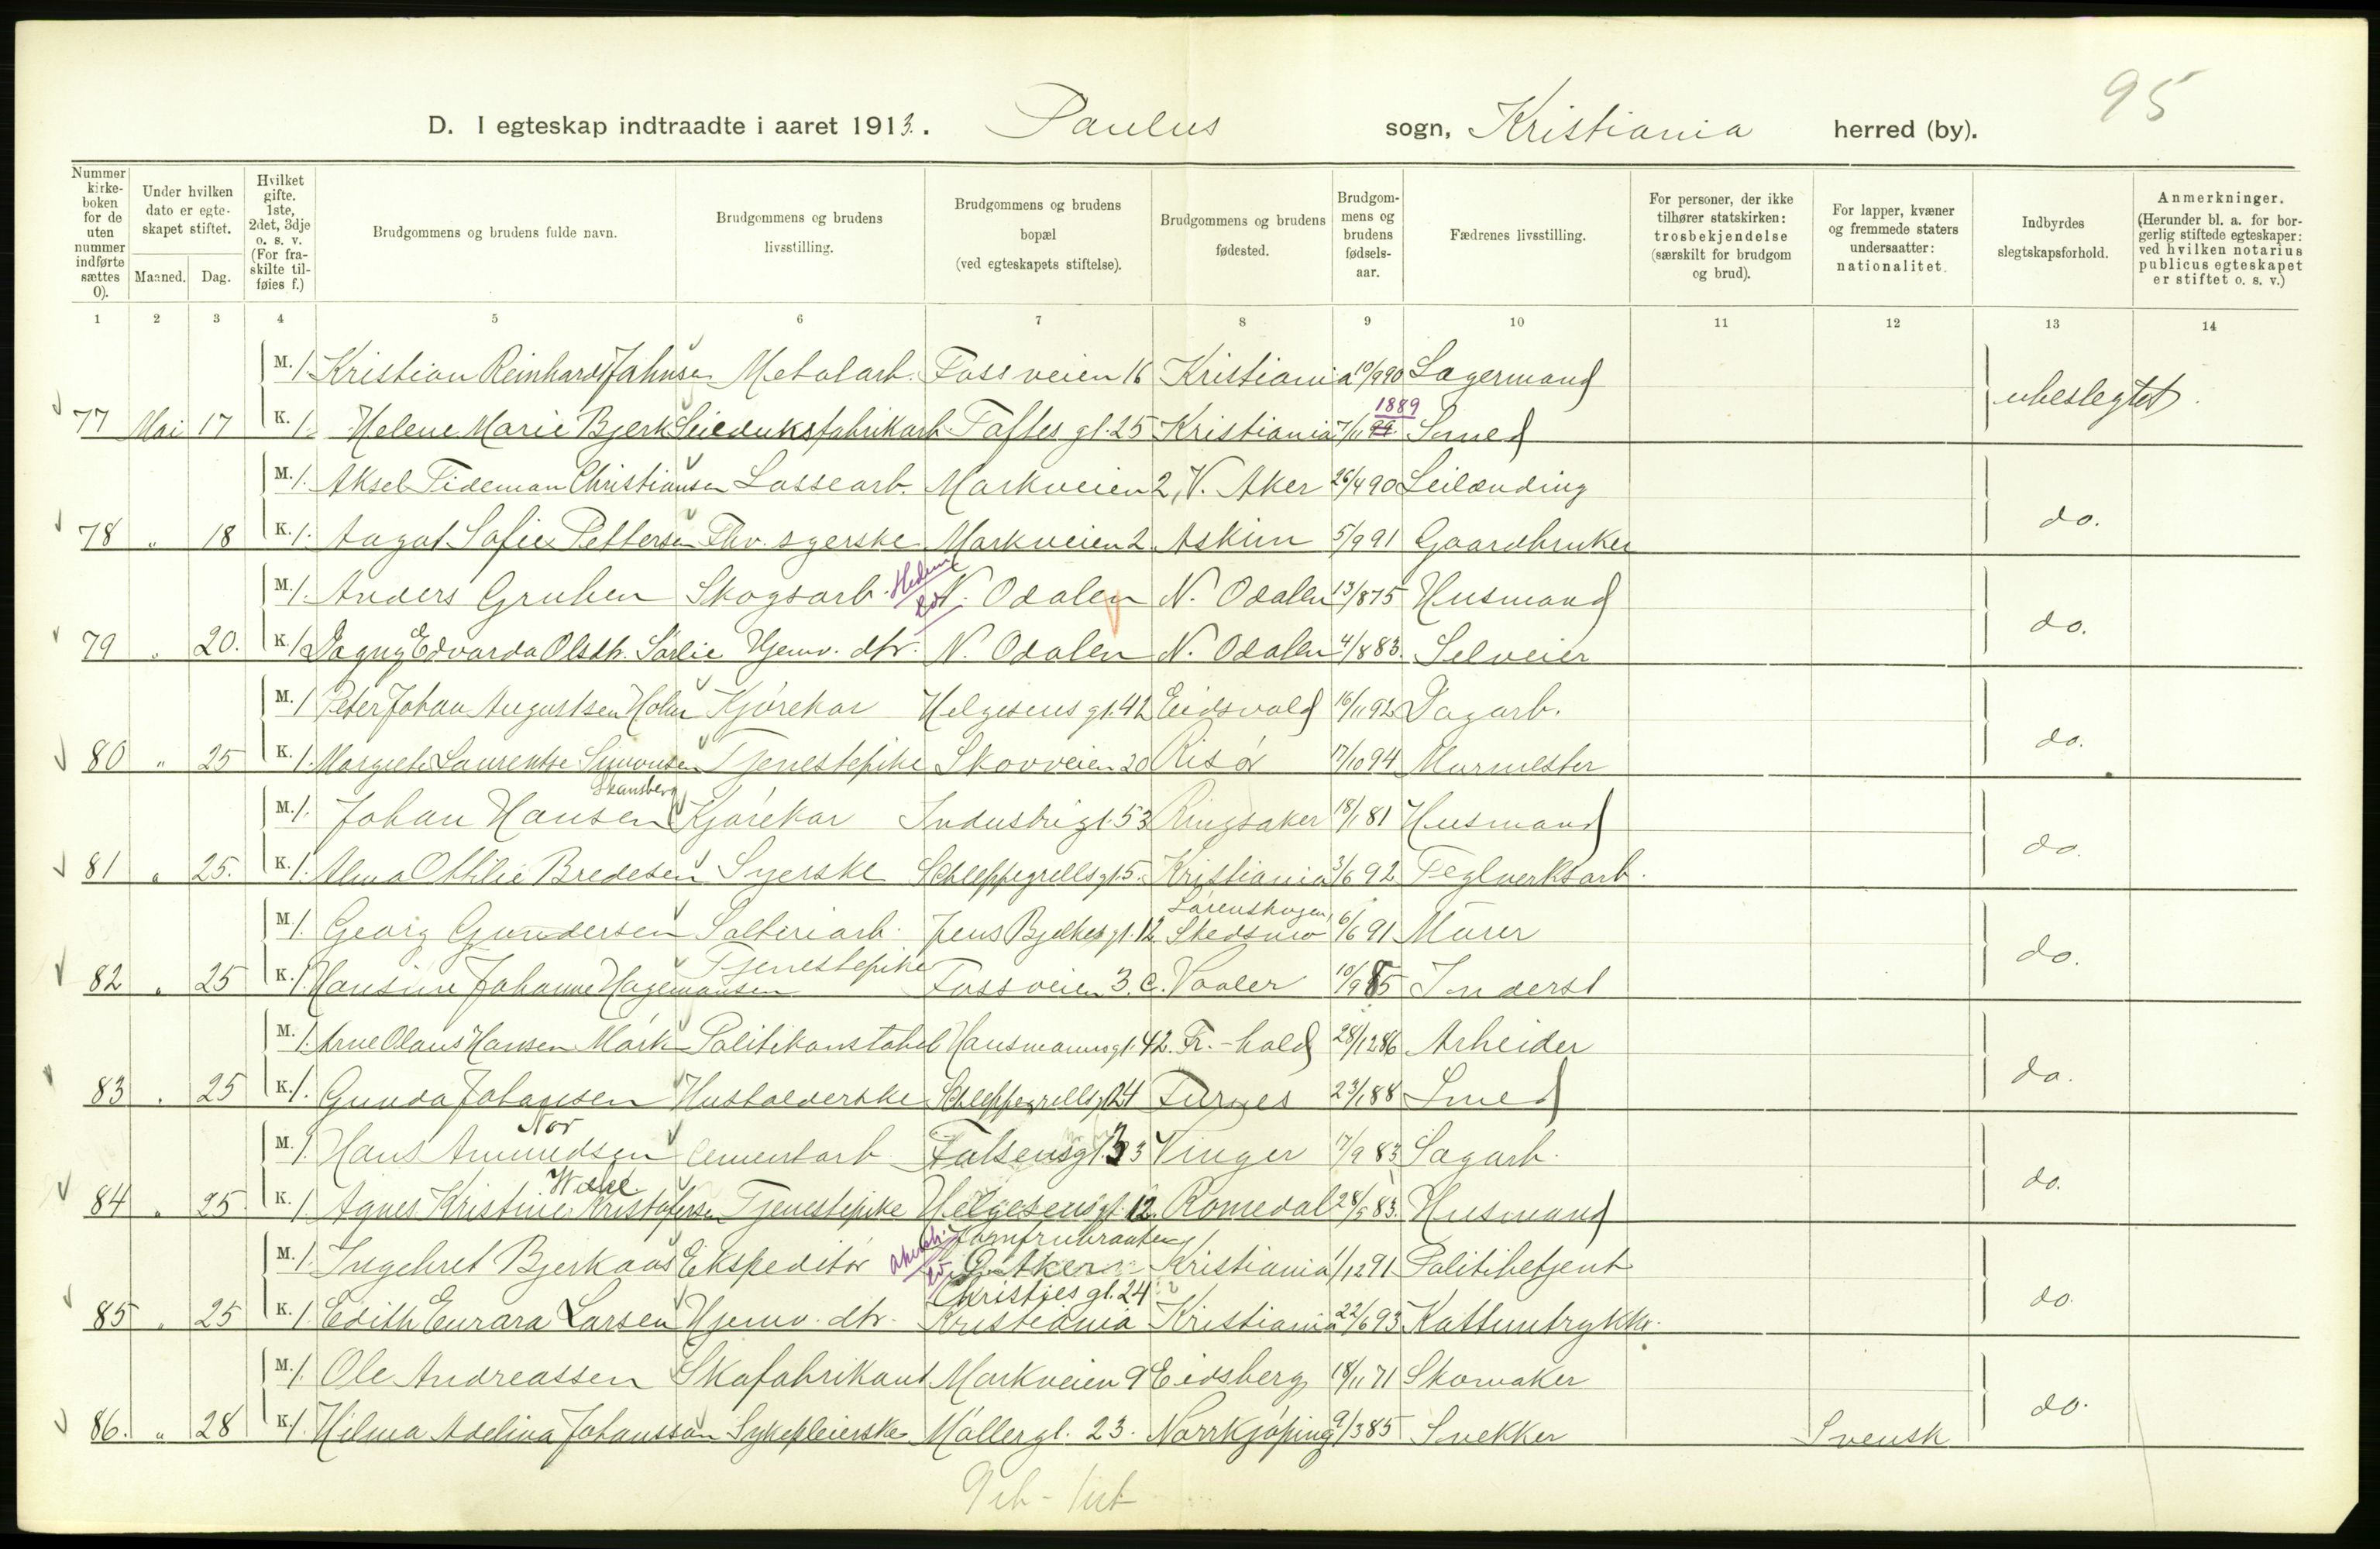 95
D. I egteskap indtraadte i aaret 1913. Paulus sogn, Kristiania herred (by).
Nummer kirkeboken for de uten nummer indførte sættes 0).
Under hvilken dato er egteskapet stiftet.
Maaned. Dag.
Hvilket gifte. 1ste, 2det, 3dje o. s. v. (For fraskilte tilføies f.)
Brudgommens og brudens fulde navn.
Brudgommens og brudens livsstilling.
Brudgommens og brudens bopæl (ved egteskapets stiftelse).
Brudgommens og brudens fødested.
Brudgommens og brudens fødselsaar.
Fædrenes livsstilling.
For personer, der ikke tilhører statskirken: trosbekjendelse (særskilt for brudgom og brud).
For lapper, kvæner og fremmede staters undersaatter: nationalitet.
Indbyrdes slegtskapsforhold.
Anmerkninger. (Herunder bl. a. for borgerlig stiftede egteskaper: ved hvilken notarius publicus egteskapet er stiftet o. s. v.)
1 2 3 4 5 6 7 8 9 10 11 12 13 14
M. 1. Kristian Reinhardt Johnsen Metalarb. Fossveien 16 Kristiania 10/9 90 Lagermand ubeslegtet.
1889
77 Mai 17 K. 1. Helene Marie Bjerk Seilduksfabrikarb Toftes gt. 25 Kristiania 7/11 Smed
M. 1. Aksel Tideman Christiansen Lossearb. Markveien 2, V. Aker 26/4 90 Leilænding
78 " 18 K. 1. Aagot Sofie Pettersen Fhv. syerske Markveien 2 Askim 5/9 91 Gaardbruker do.
Hedem
M. 1. Anders Gruben Skogsarb. N. Odalen N. Odalen 13/8 75 Husmand
79 " 20. K. 1. Dagny Edvarda Olsdtr. Sørlie Hjemv. dtr. N. Odalen N. Odalen 4/8 83. Selveier do.
M. 1 Peter Johan Augustsen Holm Kjørekar Helgesens gt. 42 Eidsvold 16/11 92 Dagarb.
80 " 25 K. 1. Margrete Laurentze Simonsen Tjenestepike Skovveien 20 Risør 17/10 94 Murmester do.
Skansberg
M. 1. Johan Hansen Kjørekar Industrigt. 53 Ringsaker 18/1 81 Husmand
81 " 25. K. 1. Alma Othilie Bredesen Syerske Schleppegrellsgt. 5. Kristiania 3/6 92 Teglverksarb. do.
Lørenskogen,
M. 1. Georg Gundersen Salteriarb. Jens Bjelkes gt. 12 Skedsmo 6/6 91 Murer
Tjenestepike
82 " 25 K. 1. Hansine Johanne Hagemansen Fossveien 3. c. Vaaler 10/9 85 Inderst do.
M. 1. Arne Olaus Hansen Mørk Politikonstabel Hausmannsgt. 42. Fr.-hald 28/12 86 Arbeider
83 " 25 K. 1. Gunda Johansen Husholderske Schleppegrellsgt 24 Furnes 23/1 88 Smed do.
Nor
M. 1. Hans Amundsen Cementarb Falsensgt. 33 Vinger 17/9 83 Sagarb.
84 " 25. K. 1. Agnes Kristine Kristofersen Tjenestepike Helgesens gt. 12. Romedal 28/5 83. Husmand do.
Jomfrubraaten
M. 1. Ingebret Bjerkaas Ekspeditør Ø. Aker Kristiania 1/12 91 Politibetjent
Christies gt. 24
85 " 25 K. 1. Edith Enrara Larsen Hjemv. dtr. Kristiania Kristiania 22/6 93 Kattuntrykker. do.
M. 1. Ole Andreassen Skofabrikant Markveien 9 Eidsberg 18/11 71 Skomaker
86. " 28 K. 1. Hilma Adelina Johansson Sykepleierske Møllergt. 23. Norrkjøping 9/3 85 Snekker Svensk do.